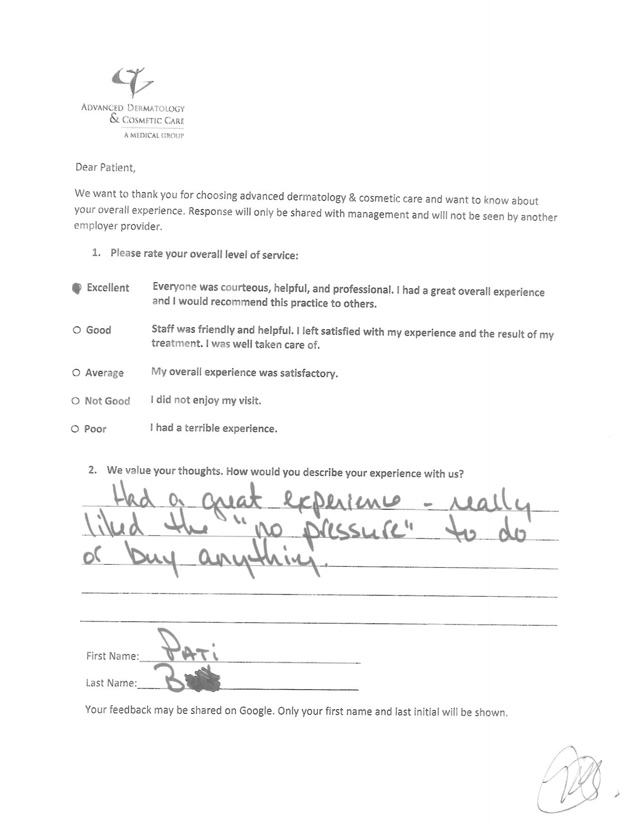 ADVANCED DERMATOLOGY
& COSMETIC CARE
A MEDICAL GROUP
Dear Patient,
We want to thank you for choosing advanced dermatology & cosmetic care and want to know about
your overall experience. Response will only be shared with management and will not be seen by another
employer provider.
1. Please rate your overall level of service:
Excellent Everyone was courteous, helpful, and professional. I had a great overall experience
and I would recommend this practice to others.
O Good Staff was friendly and helpful. I left satisfied with my experience and the result of my
treatment. I was well taken care of.
O Average My overall experience was satisfactory.
O Not Good I did not enjoy my visit.
O Poor I had a terrible experience.
2. We value your thoughts. How would you describe your experience with us?
Had a great experience - really
liked the "no pressure" to do
or buy anything.
First Name: PATi
Last Name: B
Your feedback may be shared on Google. Only your first name and last initial will be shown.